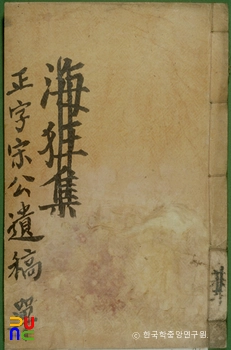 海狂集
正字宋公遺稿 單
© 한국학중앙연구원